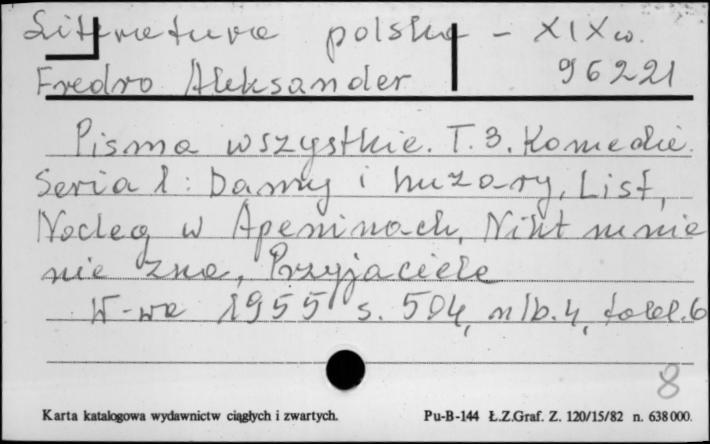 Literatura polska - XIX w.
Fredro Aleksander 96221
Pisma wszystkie. T. 3. Komedie.
Seria 1: Damy i huzary, List,
Nocleg w Apeninach, Nikt mnie
nie zna, Przyjaciele
W-wa 1955 s. 504, nlb. 4, tabl. 6
8
Karta katalogowa wydawnictw ciągłych i zwartych. Pu-B-144 Ł.Z.Graf. Z. 120/15/82 n. 638 000.